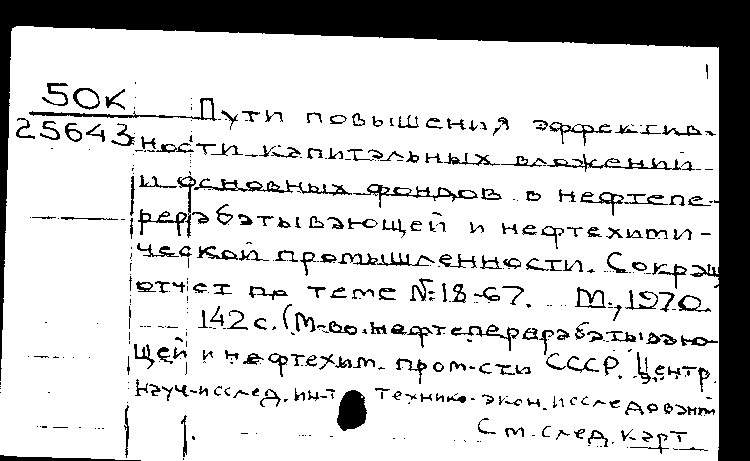 50К
25643
Пути повышения эффектив-
ности капитальных вложений
и основных фондов в нефтепе-
рерабатывающей и нефтехими-
ческой промышленности. Сокращ
отчет по теме №18-67. М., 1970.
142 с. (М-во нефтеперерабатываю-
щей и нефтехим. пром-сти СССР. Центр.
науч-исслед. ин-т технико-экон. исследований
См. след. карт.